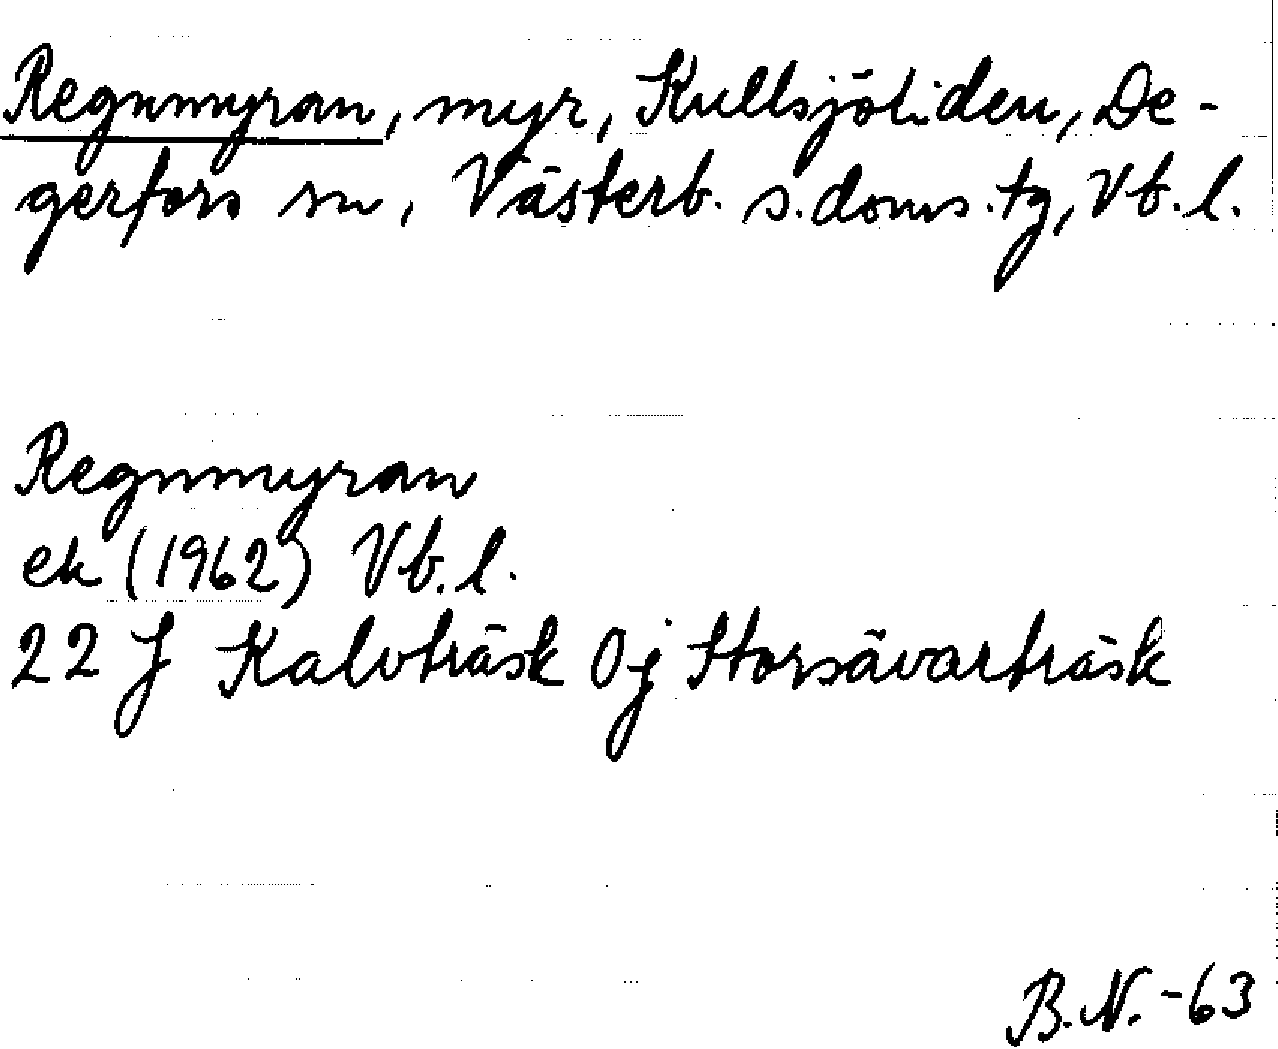 Regnmyran, myr, Kullsjöliden, De-
gerfors sn, Västerb. s. doms. tg, Vb. l.
Regnmyran
ek (1962) Vb. l.
22 J Kalvträsk 0j Storsävarträsk
B.N. -63